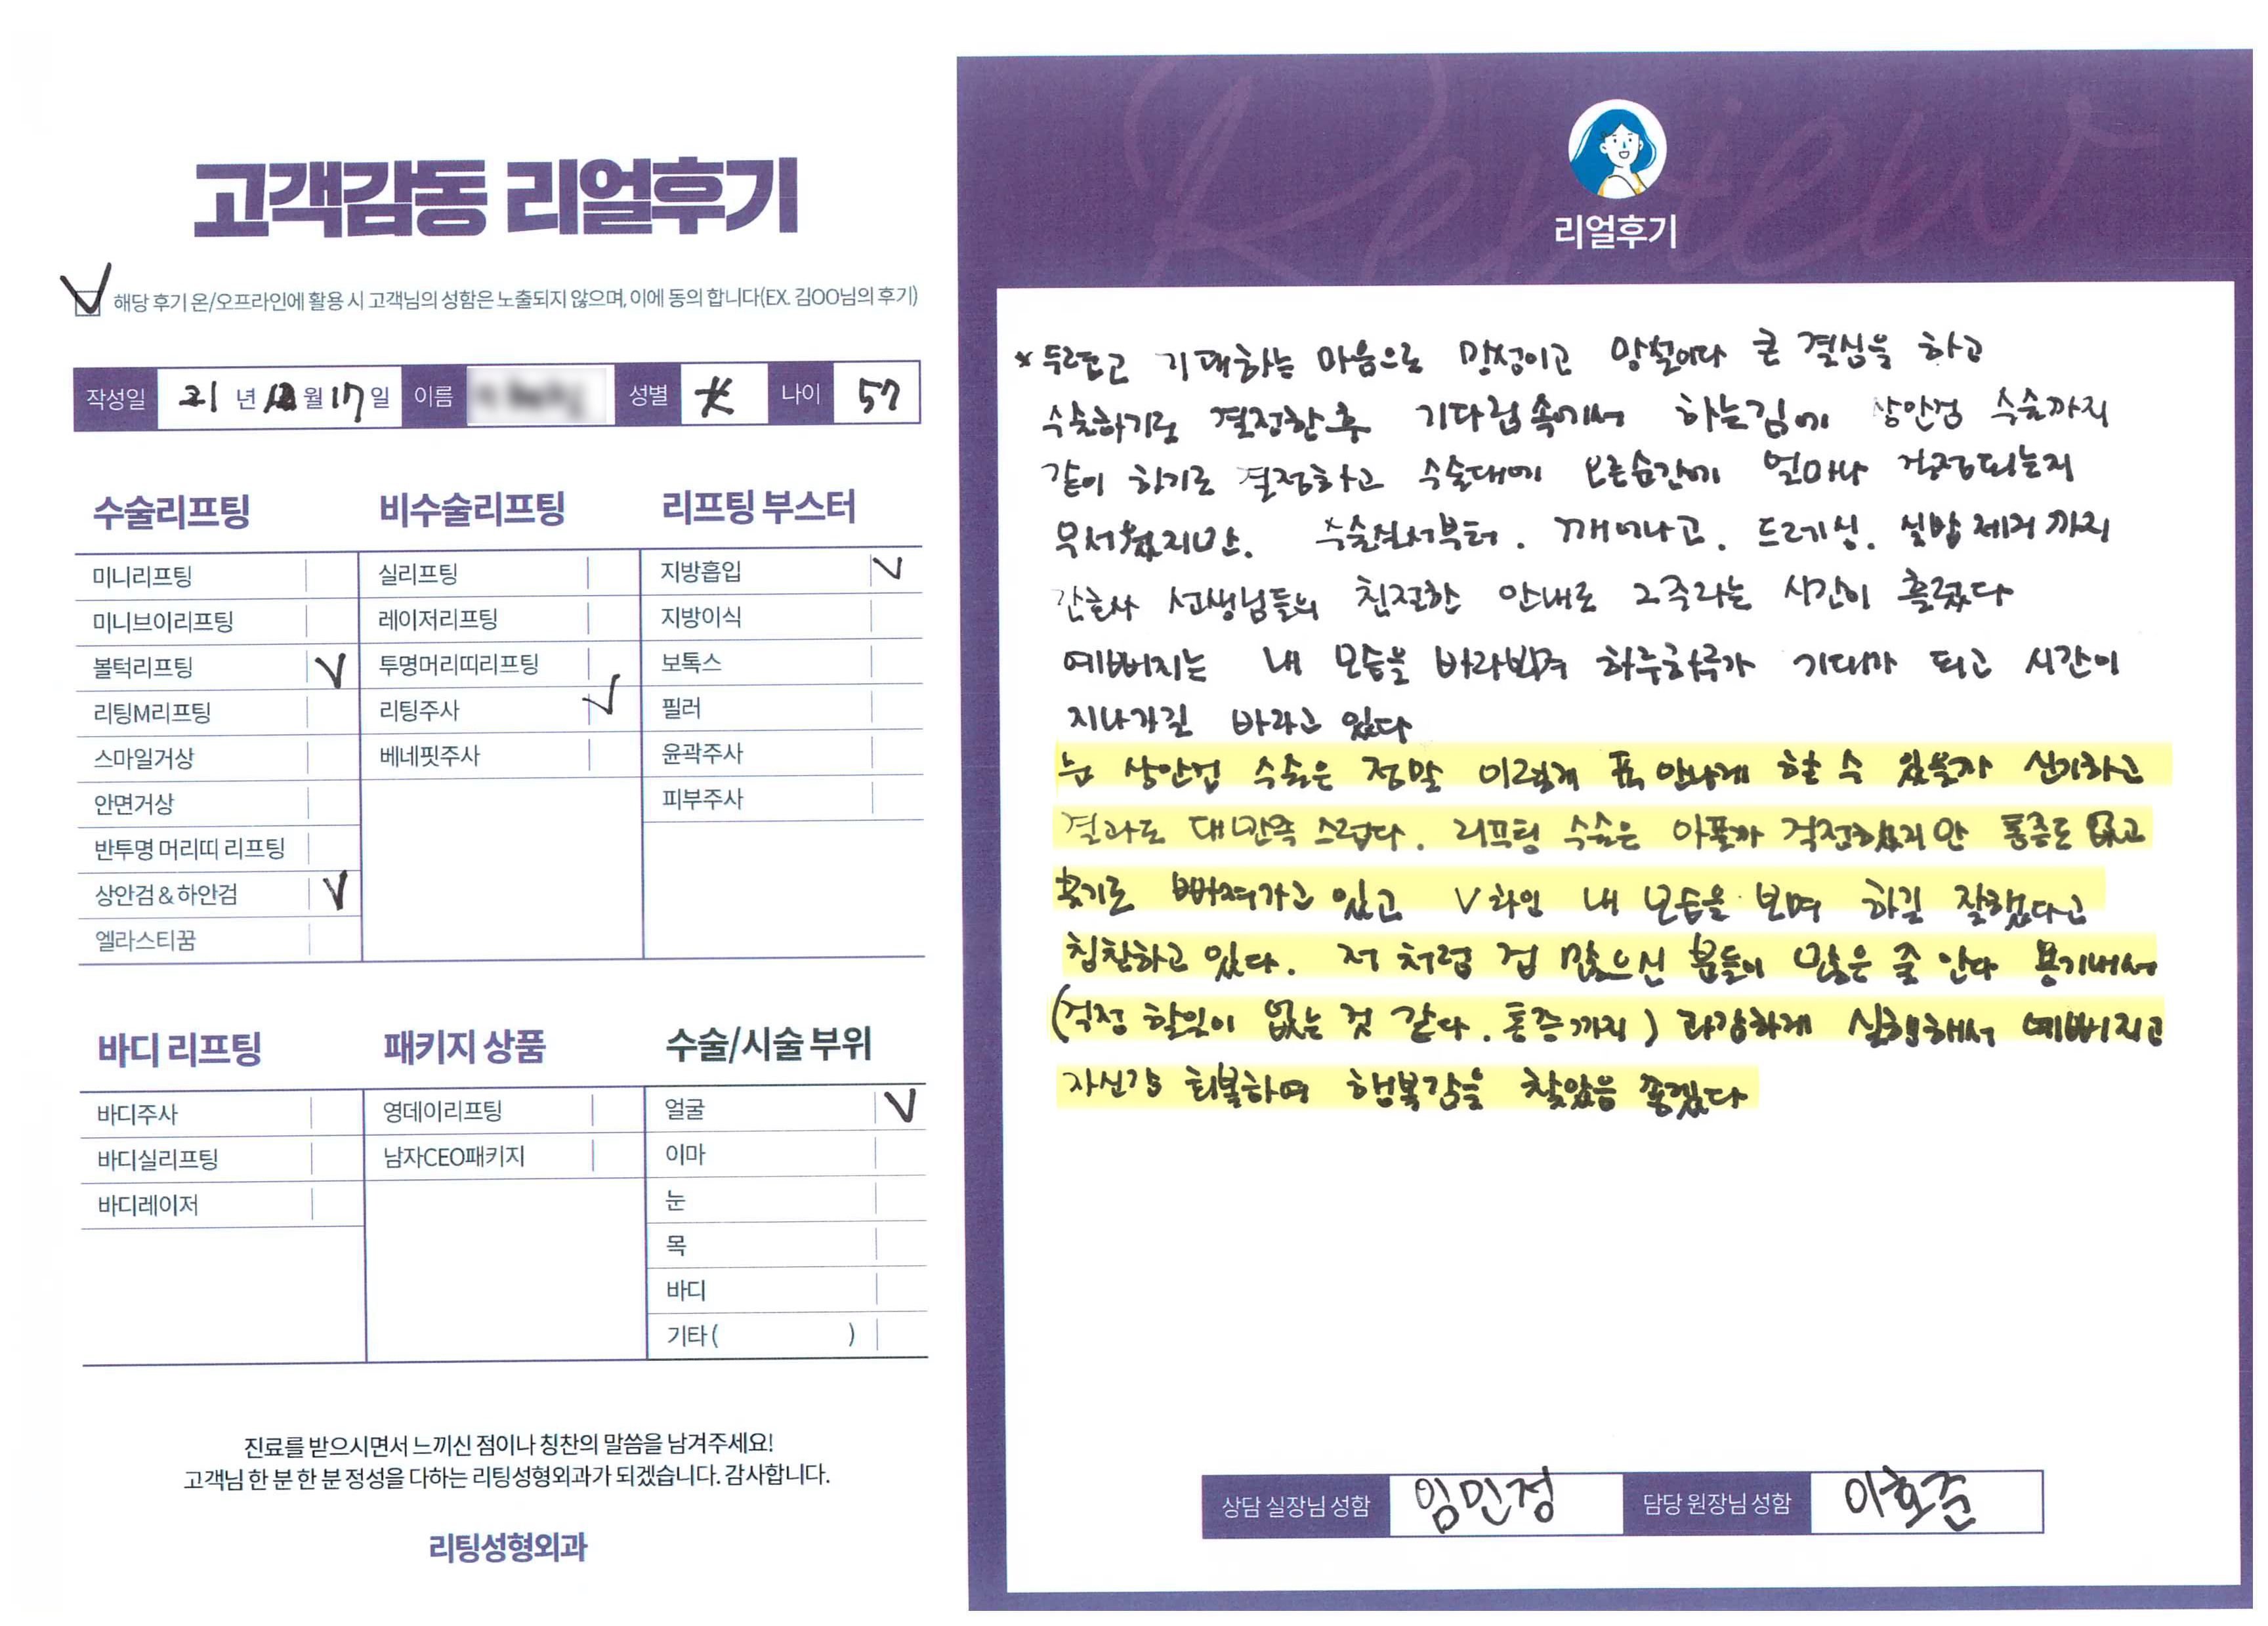 고객감동 리얼후기
해당 후기 온/오프라인에 활용 시 고객님의 성함은 노출되지 않으며, 이에 동의 합니다(EX. 김OO님의 후기)
작성일 21 년 12 월 17 일 이름 성별 女 나이 57
수술리프팅
미니리프팅
미니브이리프팅
볼턱리프팅 V
리팅M리프팅
스마일거상
안면거상
반투명 머리띠 리프팅
상안검 & 하안검 V
엘라스티꿈
비수술리프팅
실리프팅
레이저리프팅
투명머리띠리프팅
리팅주사 V
베네핏주사
리프팅 부스터
지방흡입 V
지방이식
보톡스
필러
윤곽주사
피부주사
바디 리프팅
바디주사
바디실리프팅
바디레이저
패키지 상품
영데이리프팅
남자CEO패키지
수술/시술 부위
얼굴 V
이마
눈
목
바디
기타 ( )
진료를 받으시면서 느끼신 점이나 칭찬의 말씀을 남겨주세요!
고객님 한 분 한 분 정성을 다하는 리팅성형외과가 되겠습니다. 감사합니다.
리팅성형외과
Review
리얼후기
* 두렵고 기대하는 마음으로 망성이고 망설이다 큰 결심을 하고
수술하기로 결정한 후 기다림속에서 하는김에 상안검 수술까지
같이 하기로 결정하고 수술대에 오른순간에 얼마나 걱정되는지
무서웠지만. 수술실서부터. 깨어나고. 드레싱. 실밥제거까지
간호사 선생님들의 친절한 안내로 2주라는 시간이 흘렀다
예뻐지는 내 모습을 바라보며 하루하루가 기대가 되고 시간이
지나가길 바라고 있다
눈 상안검 수술은 정말 이렇게 표 안나게 할 수 있을까 신기하고
결과도 대만족 스럽다. 리프팅 수술은 아플까 걱정했지만 통증도 없고
붓기도 빠져가고 있고 V라인 내 모습을 보며 하길 잘했다고
칭찬하고 있다. 저 처럼 겁 많으신 분들이 많은 줄 안다 용기내서
(걱정 할일이 없는 것 같다. 통증까지) 과감하게 실행해서 예뻐지고
자신감 회복하여 행복감을 찾았음 좋겠다
상담 실장님 성함 임민정 담당 원장님 성함 이호준